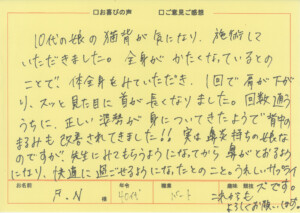 □お喜びの声 □ご意見ご感想
10代の娘の猫背が気になり、施術して
いただきました。全身がかたくなっているとの
ことで、体全身をみていただき、1回で肩が下が
り、スッと見た目に首が長くなりました。回数通う
うちに、正しい姿勢が身についてきたようで背中の
まるみも改善されてきました!! 実は鼻炎持ちの娘な
のですが、先生にみてもらうようになってから鼻がとおるよう
になり、快適に過ごせるようになったとのこと。うれしいサプライ
ズです。
これからも
よろしくお願いします。
お名前
年令
職業
趣味
F.N
40代
パート